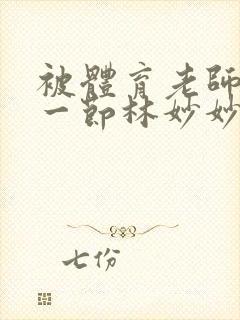 被體育老師
一節林妙妙
七份